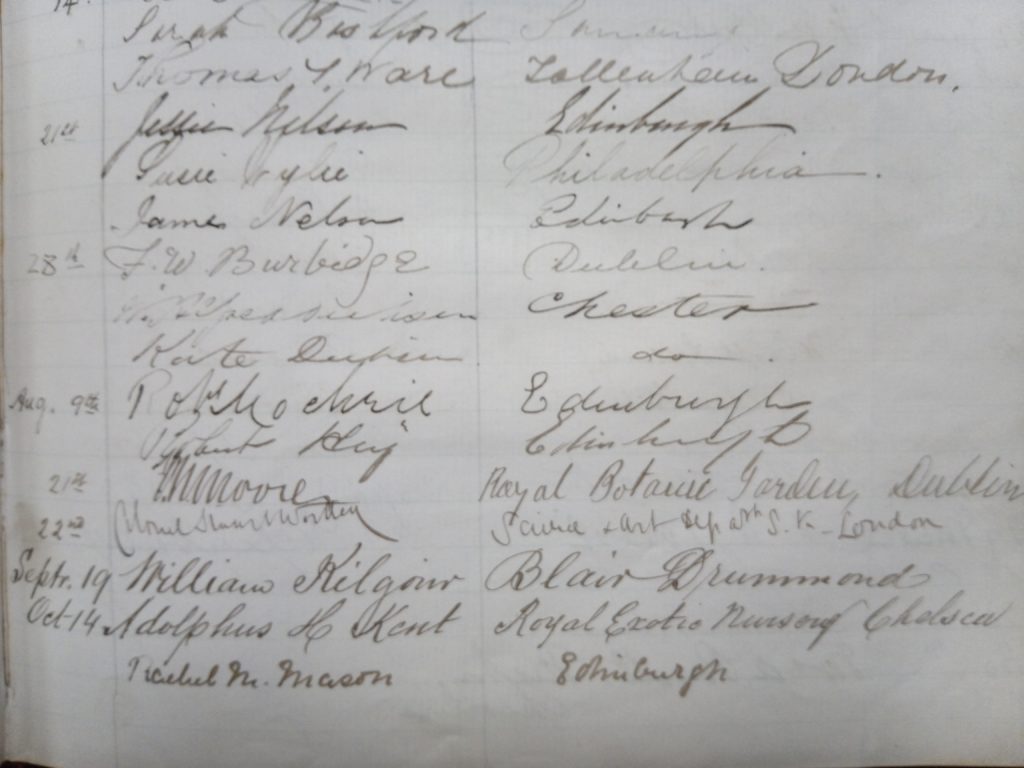 14.
Sarah
Thomas S. Ware Tottenham London.
21st Jessie Nelson Edinburgh
Susie Wylie Philadelphia.
James Nelson Edinburgh
28th F. W Burbidge Dublin.
Chester
Kate do.
Aug. 9th Edinburgh
Robert Edinburgh
21st Moore Royal Botanic Garden, Dublin
22nd Science & Art Depath S. K. London
Septr. 19 William Kilgour Blair Drummond
Oct 14 Adolphus H Kent Royal Exotic Nursery Chelsea
M. Mason Edinburgh